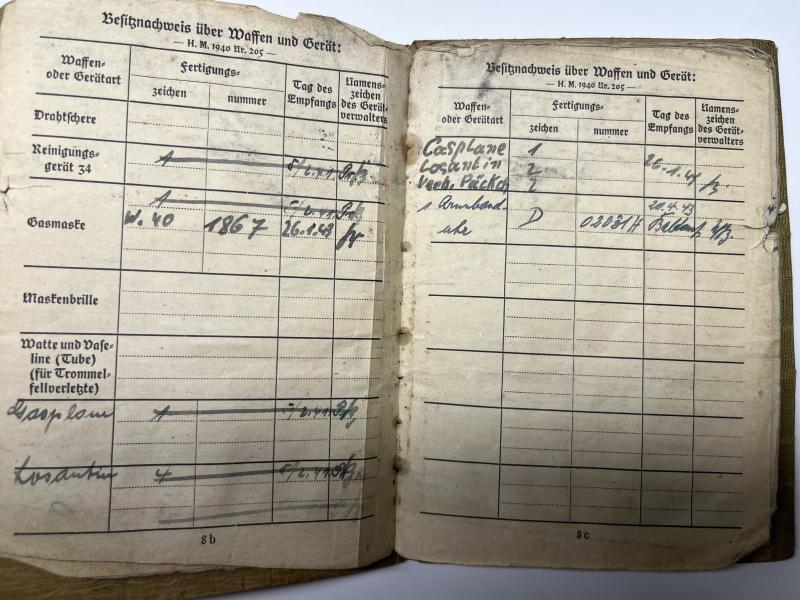 Besitznachweis über Waffen und Gerät:
— H. M. 1940 Nr. 205 —
Waffen- oder Gerätart
Fertigungs-
zeichen
nummer
Tag des Empfangs
Namens-zeichen des Gerät-verwalters
Drahtschere
Reinigungs-
gerät 34
1
1
Gasmaske
W. 40 1867 26.1.43
Maskenbrille
Watte und Vase-
line (Tube)
(für Trommel-
fellverletzte)
Gasplane 1
Losantin 4
8b
Besitznachweis über Waffen und Gerät:
— H. M. 1940 Nr. 205 —
Waffen- oder Gerätart
Fertigungs-
zeichen
nummer
Tag des Empfangs
Namens-zeichen des Gerät-verwalters
Gasplane 1
Losantin 2
Verb. Päckch 2
1 Armband-
uhr D 02031H
8c